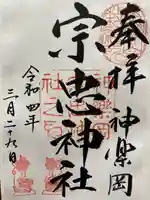 奉拝 神楽岡
宗忠神社
令和四年
三月二十九日